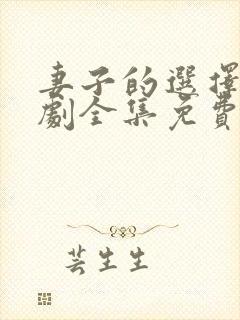 妻子的選擇
劇全集免費
芸生生